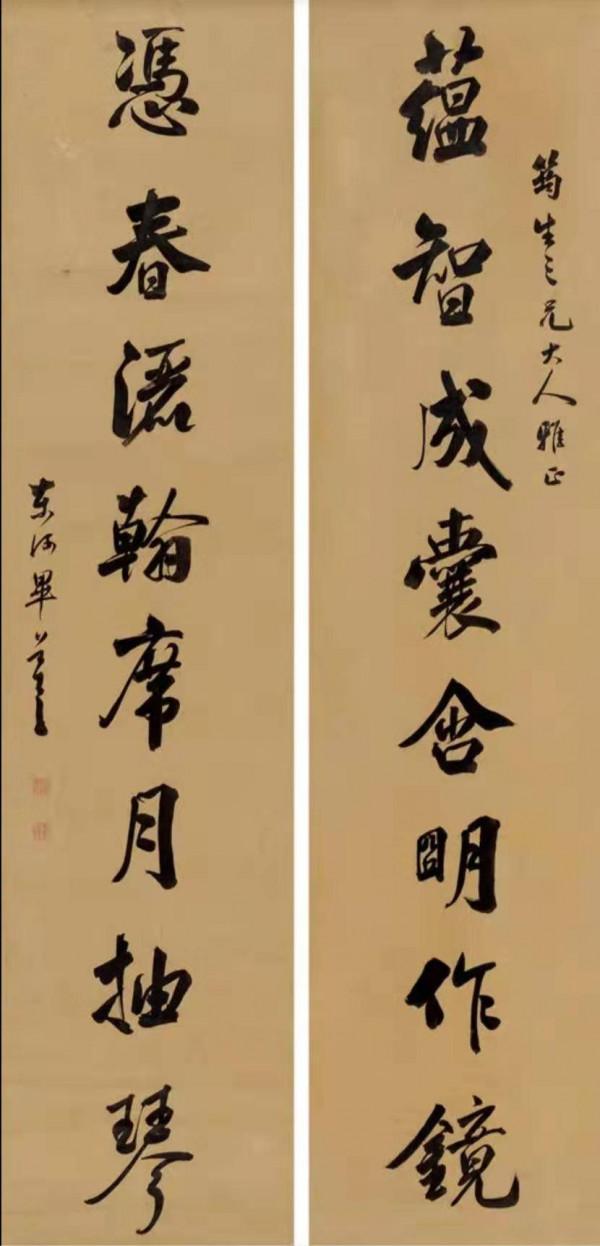 筠生三兄大人雅正
蘊智成囊含明作鏡
憑春灑翰席月抽琴
東河畢